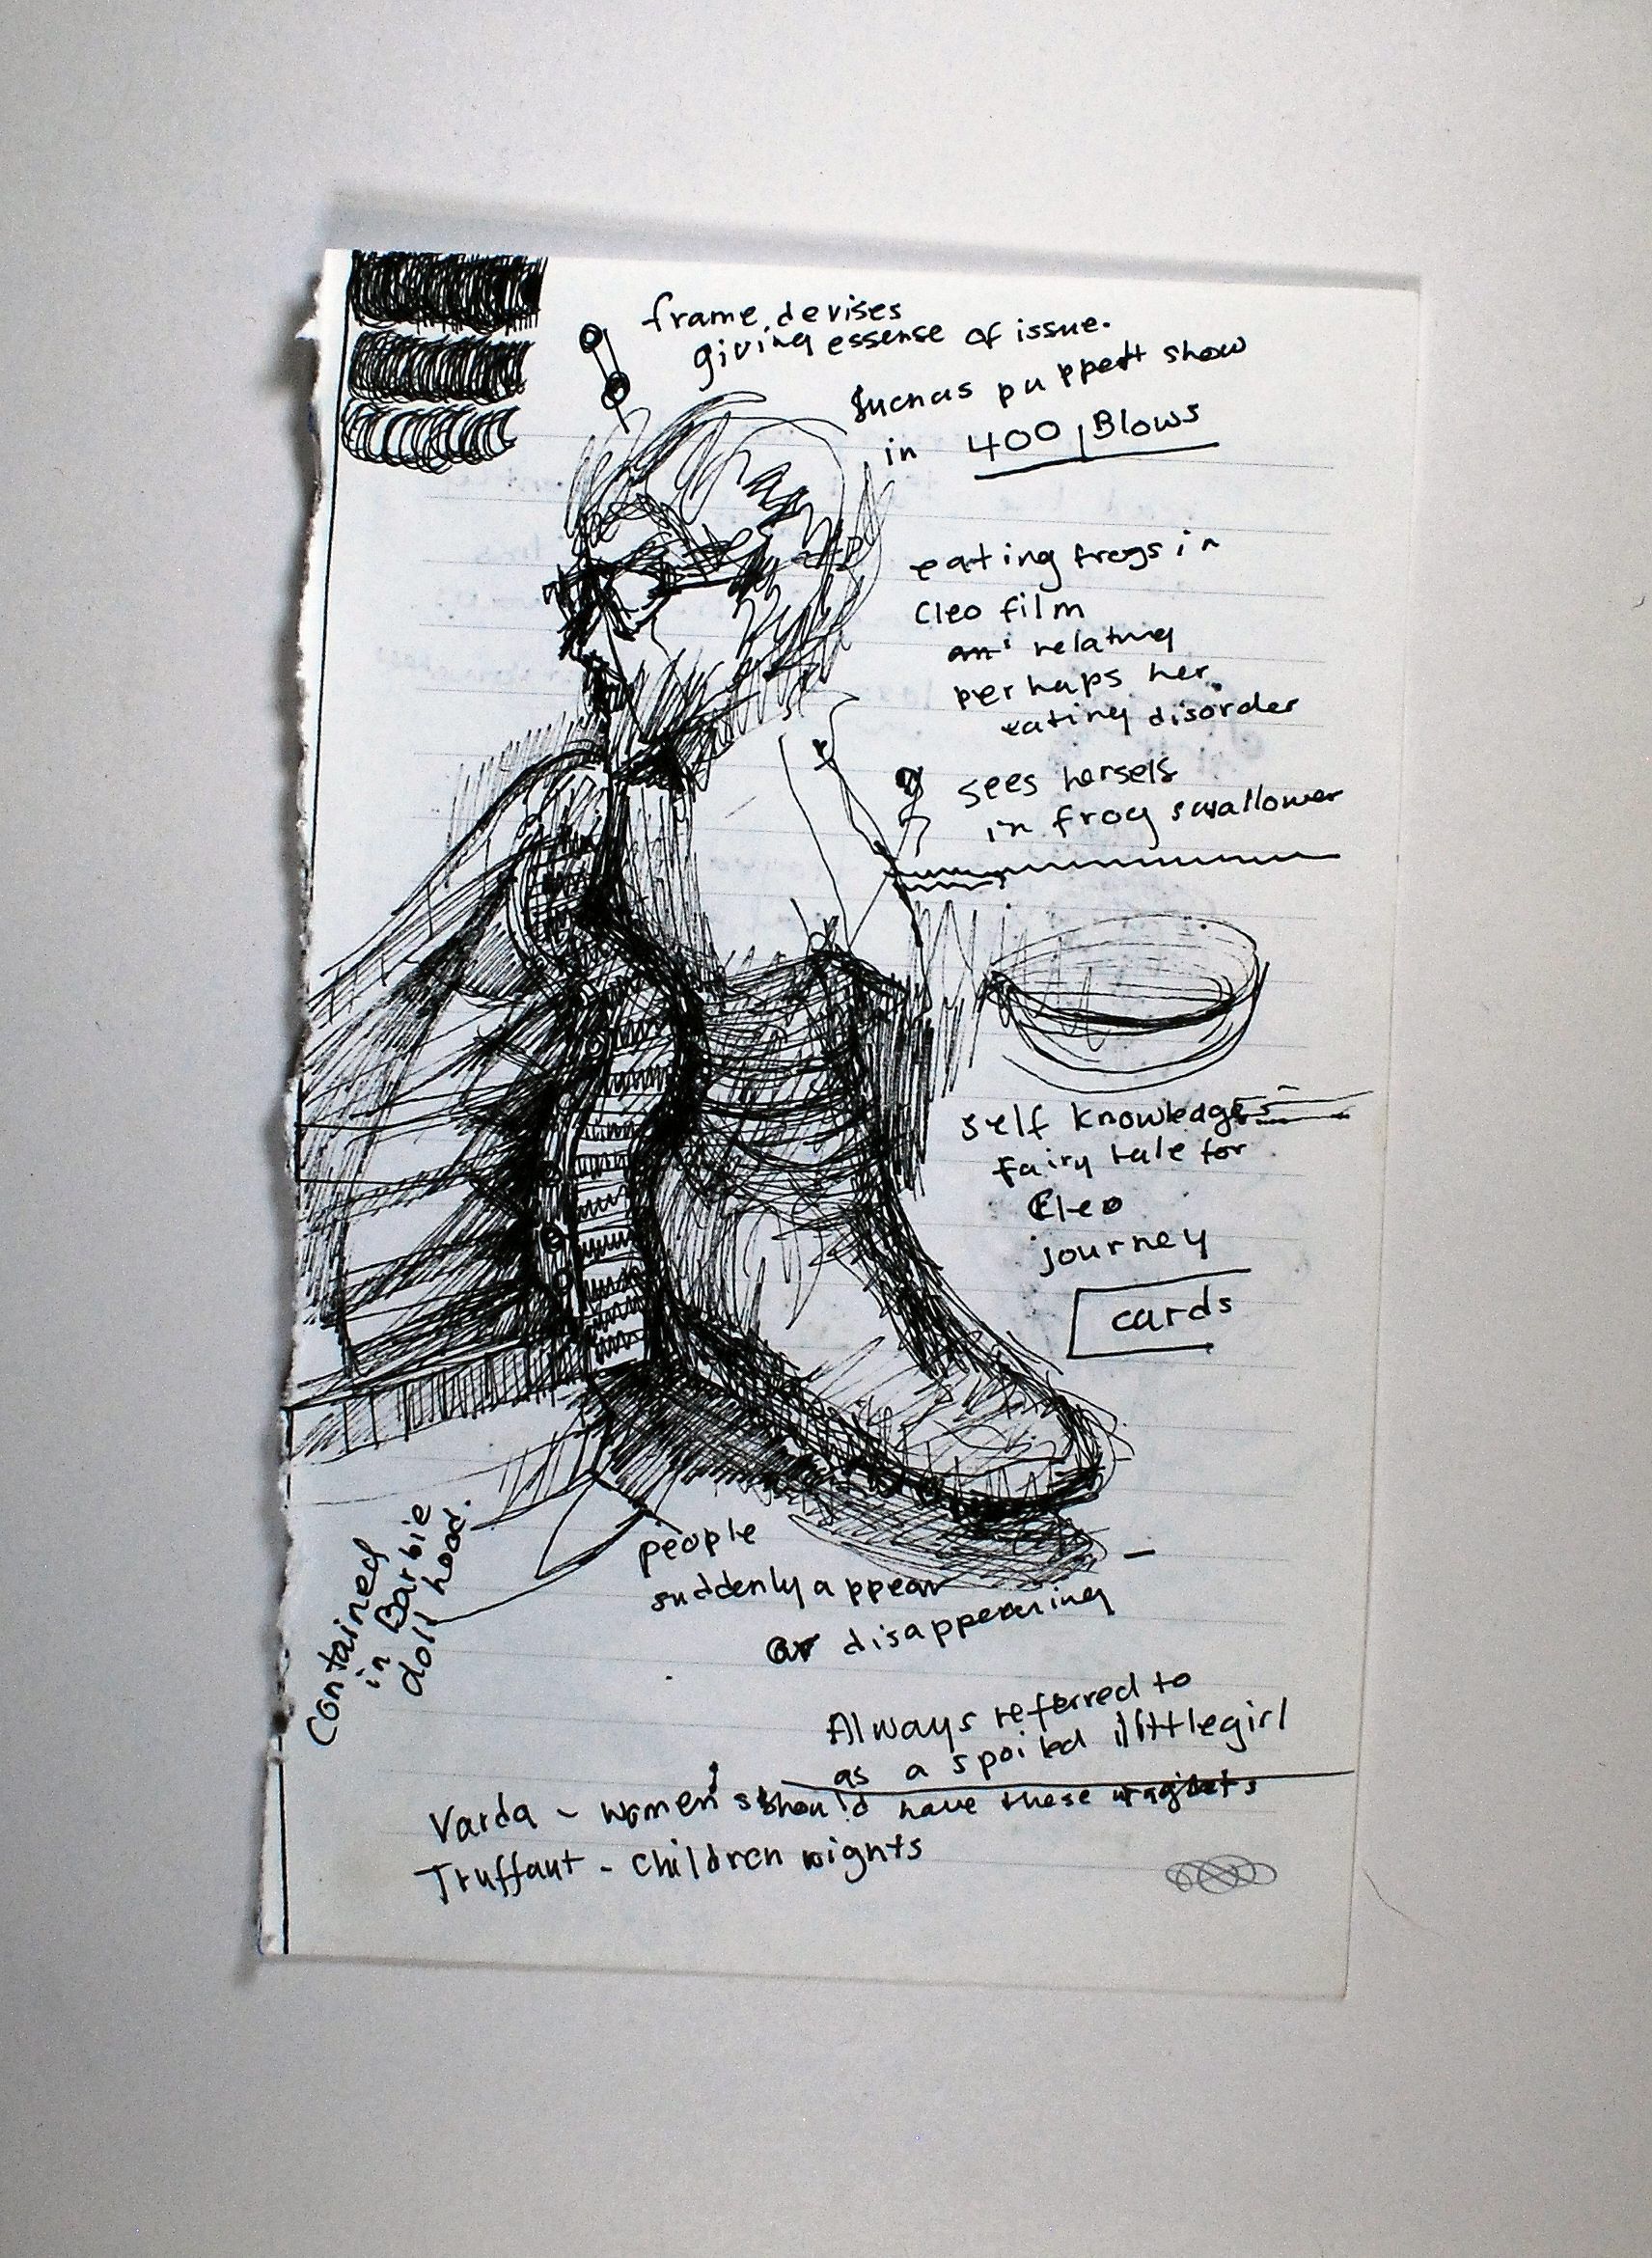 frame devises
giving essense of issue.
Suchas puppett show
in 400 Blows
eating frogs in
Cleo film
relating
perhaps her
eating disorder
sees herself
in frog swallower
self knowledge
fairy tale for
Cleo
journey
cards
people
suddenly appear
or disappearing
Contained
in Barbie
doll head.
Always referred to
as a spoiled littlegirl
Varda - women's should have these rights
Truffaut - children rights